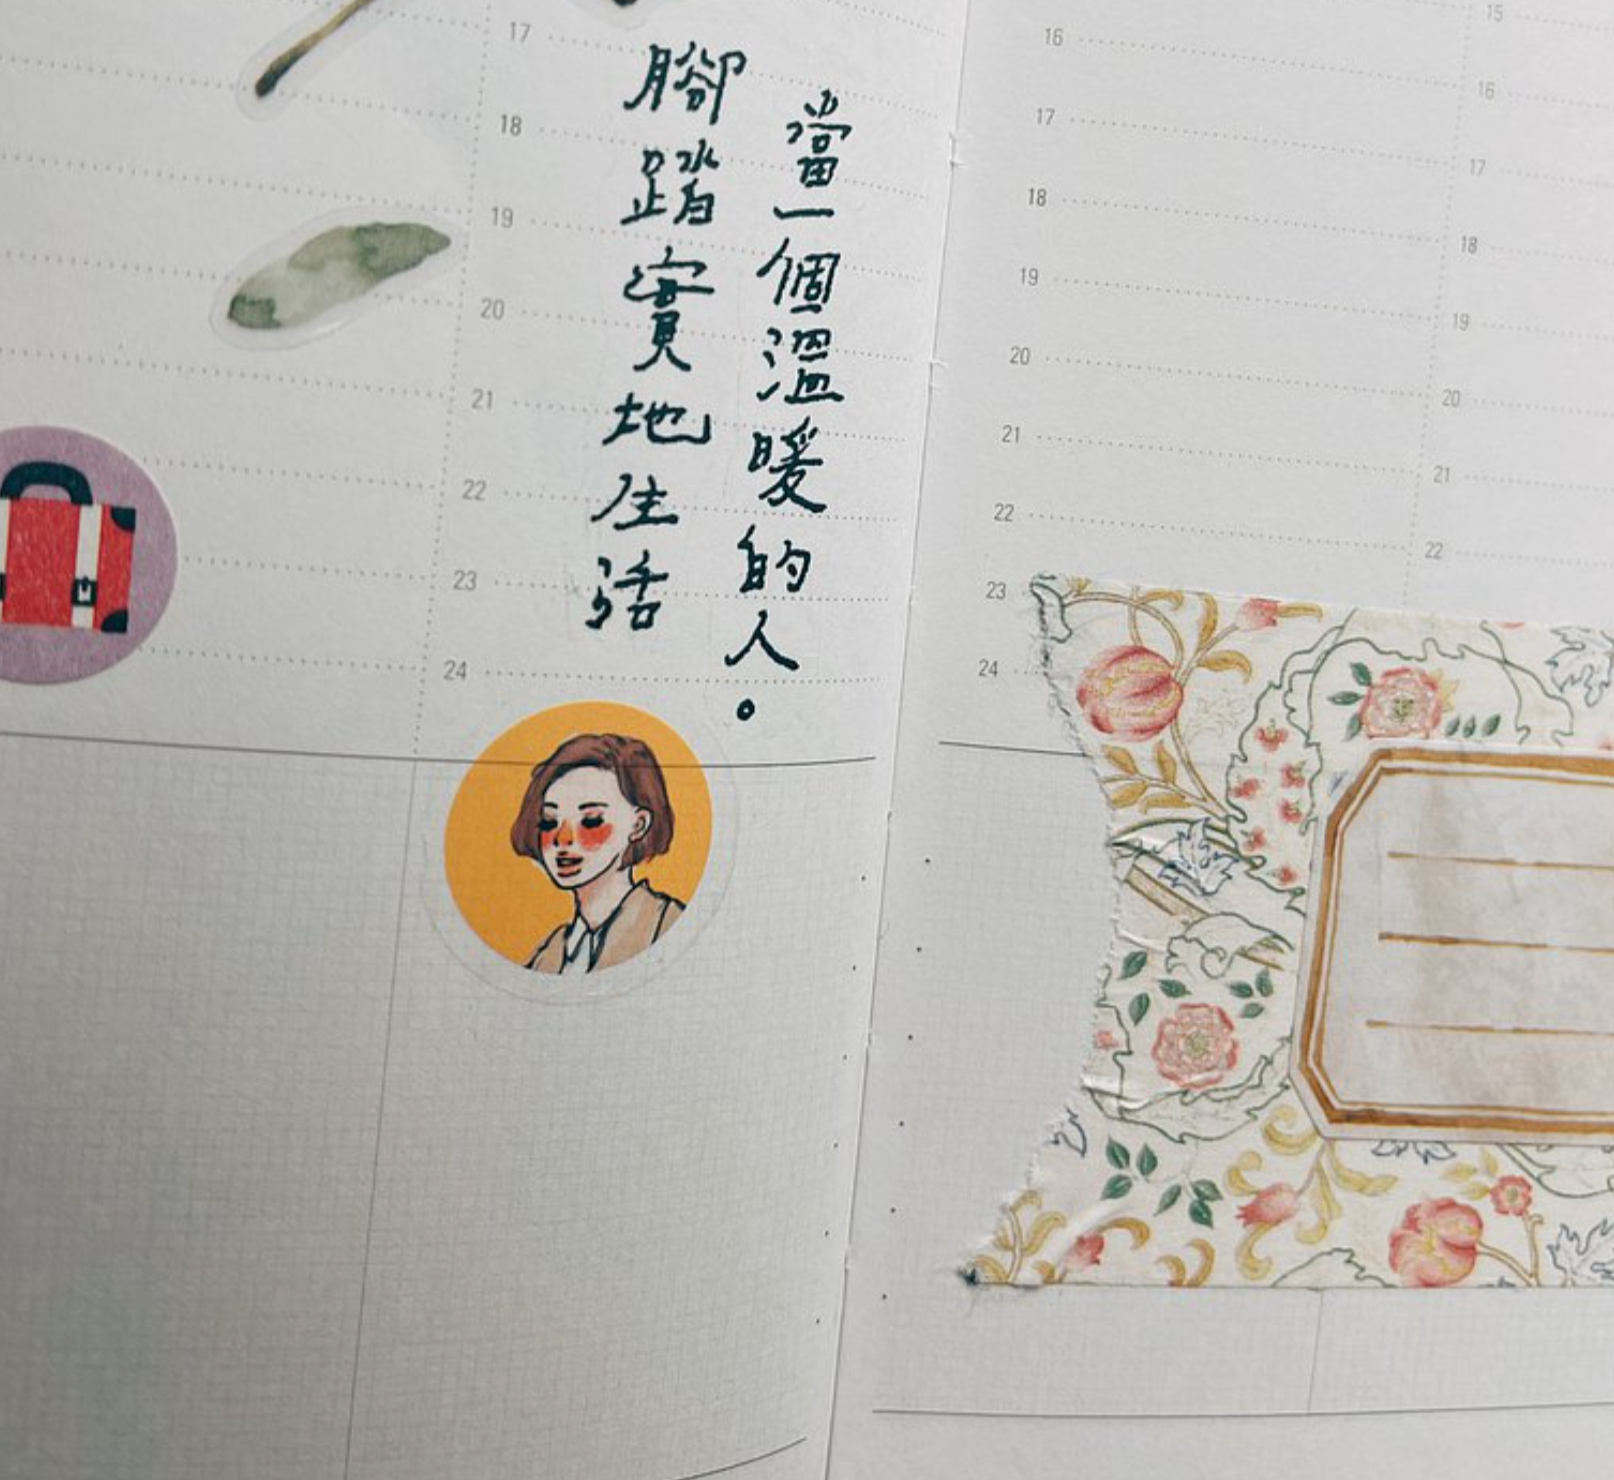 17
18
19
20
21
22
23
24
腳踏實地生活
當一個溫暖的人。
16
17
18
19
20
21
22
23
24
15
16
17
18
19
20
21
22